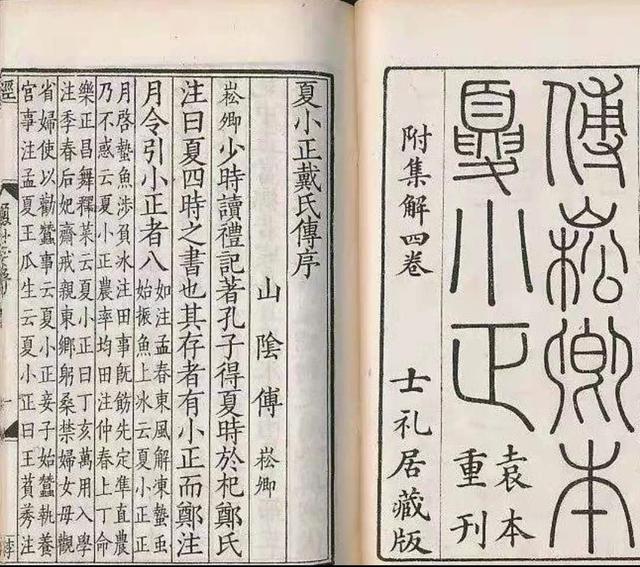 傅崧卿本
夏小正
袁本
重刊
附集解四卷
士礼居藏版
夏小正戴氏傳序
山陰傅崧卿
崧卿少時讀禮記著孔子得夏時於杞鄭氏
注曰夏四時之書也其存者有小正而鄭注
月令引小正者八
如注孟春東風解凍蟄蟲
始振魚上冰云夏小正正
月啓蟄魚陟負冰注田事既飭先定準直農
乃不惑云夏小正農率均田注仲春上丁命
樂正昌舞釋菜云夏小正曰丁亥萬用入學
注季春后妃齋戒親東鄉躬桑禁婦女毋觀
省婦使以勸蠶事云夏小正妾子始蠶執養
宮事注孟夏王瓜生云夏小正曰王萯莠注